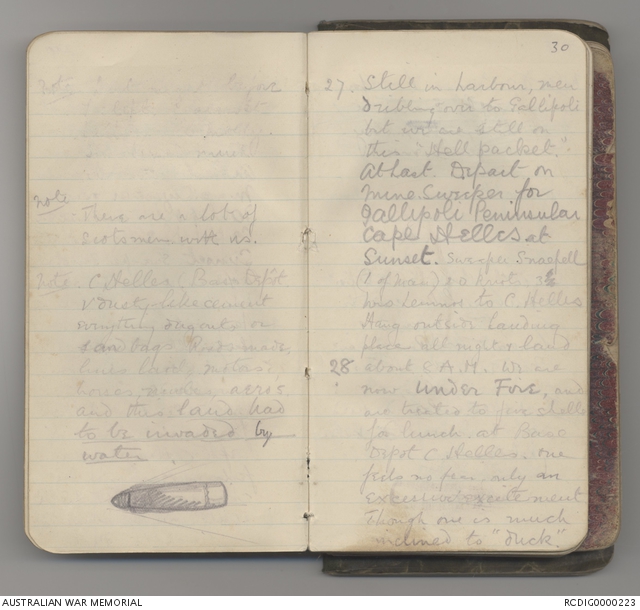 note
note
There are a lot of
Scotsmen with us.
note C. Helles (Base Depôt
v dusty, like cement
everything dug outs or
sand bags. Roads made,
lines laid, motors,
horses, mules, aeros
and this land had
to be invaded by
water
30
27. Still in harbour, men
dribbling over to Gallipoli
but we are still on
this "Hell packet."
At Last. Depart on
Mine Sweeper for
Gallipoli Peninsular
Cape Helles at
Sunset. Sweeper Snaefell
(I of man) knots
hrs Lemnos to C. Helles
Hang outside landing
place all night & land
28 about 6 A.M. We are
now Under Fire, and
are treated to five shells
for lunch at Base
Depot C Helles. One
feels no fear, only an
excessive excitement
Though one is much
inclined to "duck".
AUSTRALIAN WAR MEMORIAL
RCDIG0000223